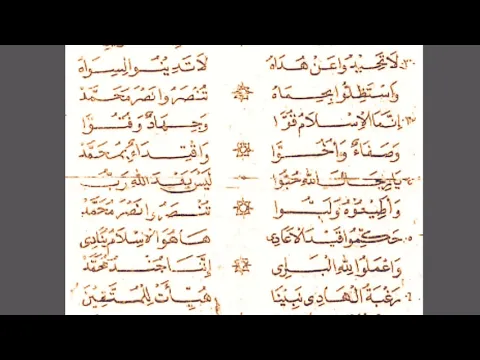 لَا تَحِيدُوا عَنْ هُدَاهُ لَا تَدِينُوا لِسِوَاهُ
وَاسْتَظِلُّوا بِحِمَاهُ تُنْصَرُوا نَصْرَ مُحَمَّدْ
إِنَّمَا الْإِسْلَامُ قُوَّا وَجِهَادٌ وَفُتُوَّا
وَصَفَاءٌ وَأُخُوَّا وَاقْتِدَاءٌ بِمُحَمَّدْ
يَا رِجَالَ اللهِ هُبُّوا لَيْسَ بَعْدَ اللهِ رَبُّ
وَأَطِيعُوهُ وَلَبُّوا تُنْصَرُوا نَصْرَ مُحَمَّدْ
قَيْدَ الْأَعَادِى هَا هُوَ الْإِسْلَامُ يُنَادِى
وَاعْمَلُوا لِلهِ الْبَرِى إِنَّنَا جُنْدُ مُحَمَّدْ
رَغْبَةُ الْهَادِى نَبِينَا هُيِّأَتْ لِلْمُتَّقِينَ